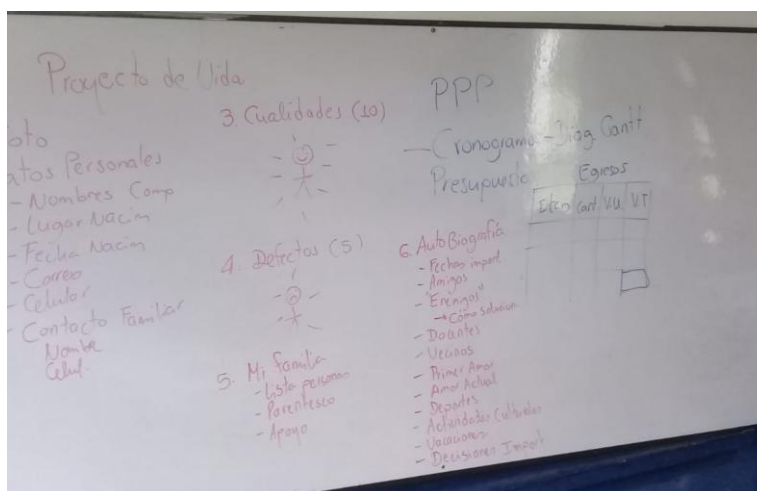 Proyecto de Vida
oto
atos Personales
- Nombres Comp
- Lugar Nacim
- Fecha Nacim
- Correo
- Celular
- Contacto Familiar
Nombre
Celul.
3. Cualidades (10)
4. Defectos (5)
5. Mi familia
- Lista personas
- Parentesco
- Apoyo
PPP
- Cronograma - Diag. Gantt
Presupuesto
Egresos
Item Cant V.U. V.T
6. AutoBiografía
- Fechas import.
- Amigos
- "Enemigos"
→ Cómo solucion
- Docentes
- Vecinos
- Primer Amor
- Amor Actual
- Deportes
- Actividades Culturales
- Vacaciones
- Decisiones Import